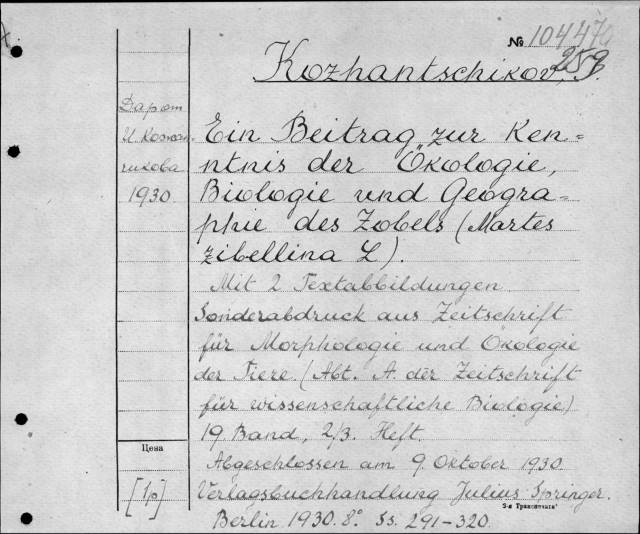 № 104470
259
Kozhantschikov, J.
Даром
И. Кожан-
чикова
1930
Ein Beitrag zur Ken=
ntnis der Ökologie,
Biologie und Geogra-
phie des Zobels (Martes
zibellina L).
Mit 2 Textabbildungen.
Sonderabdruck aus Zeitschrift
für Morphologie und Ökologie
der Tiere (Abt. A. der Zeitschrift
für wissenschaftliche Biologie)
19. Band, 2/3. Heft.
Abgeschlossen am 9. Oktober 1930.
Verlagsbuchhandlung Julius Springer.
Berlin 1930. 8°. Ss. 291-320.
Цена
[1р]